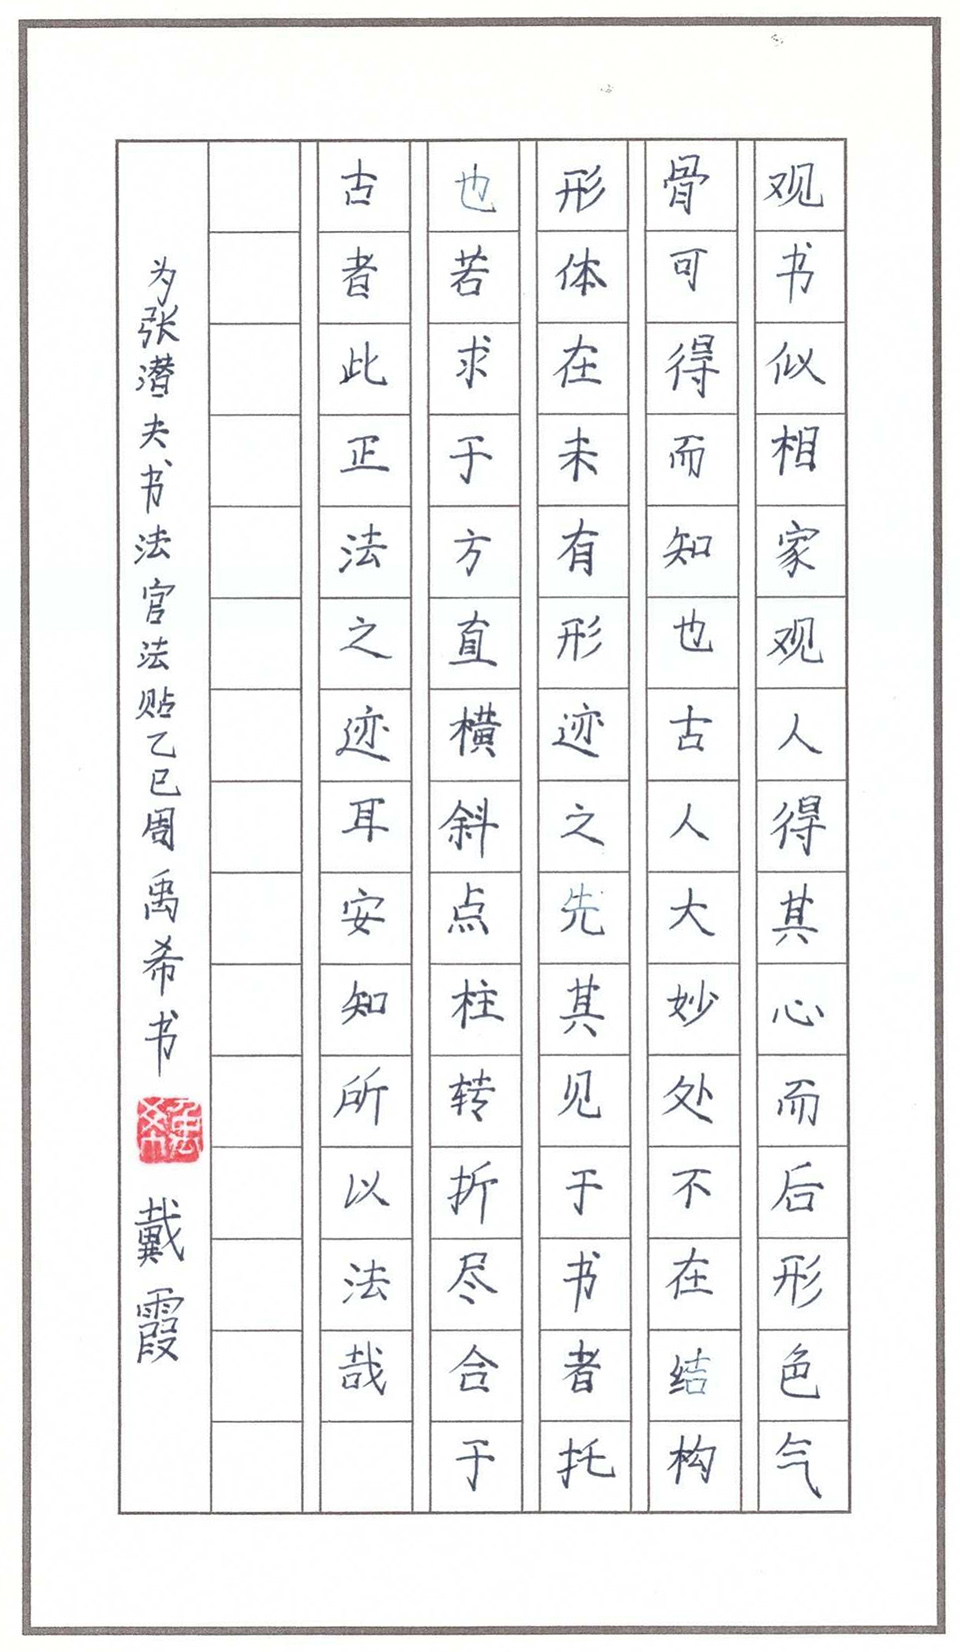 观书似相家观人得其心而后形色气
骨可得而知也古人大妙处不在结构
形体在未有形迹之先其见于书者托
也若求于方直横斜点柱转折尽合于
古者此正法之迹耳安知所以法哉
为张潜夫书法官法贴乙巳周禹希书
戴霞